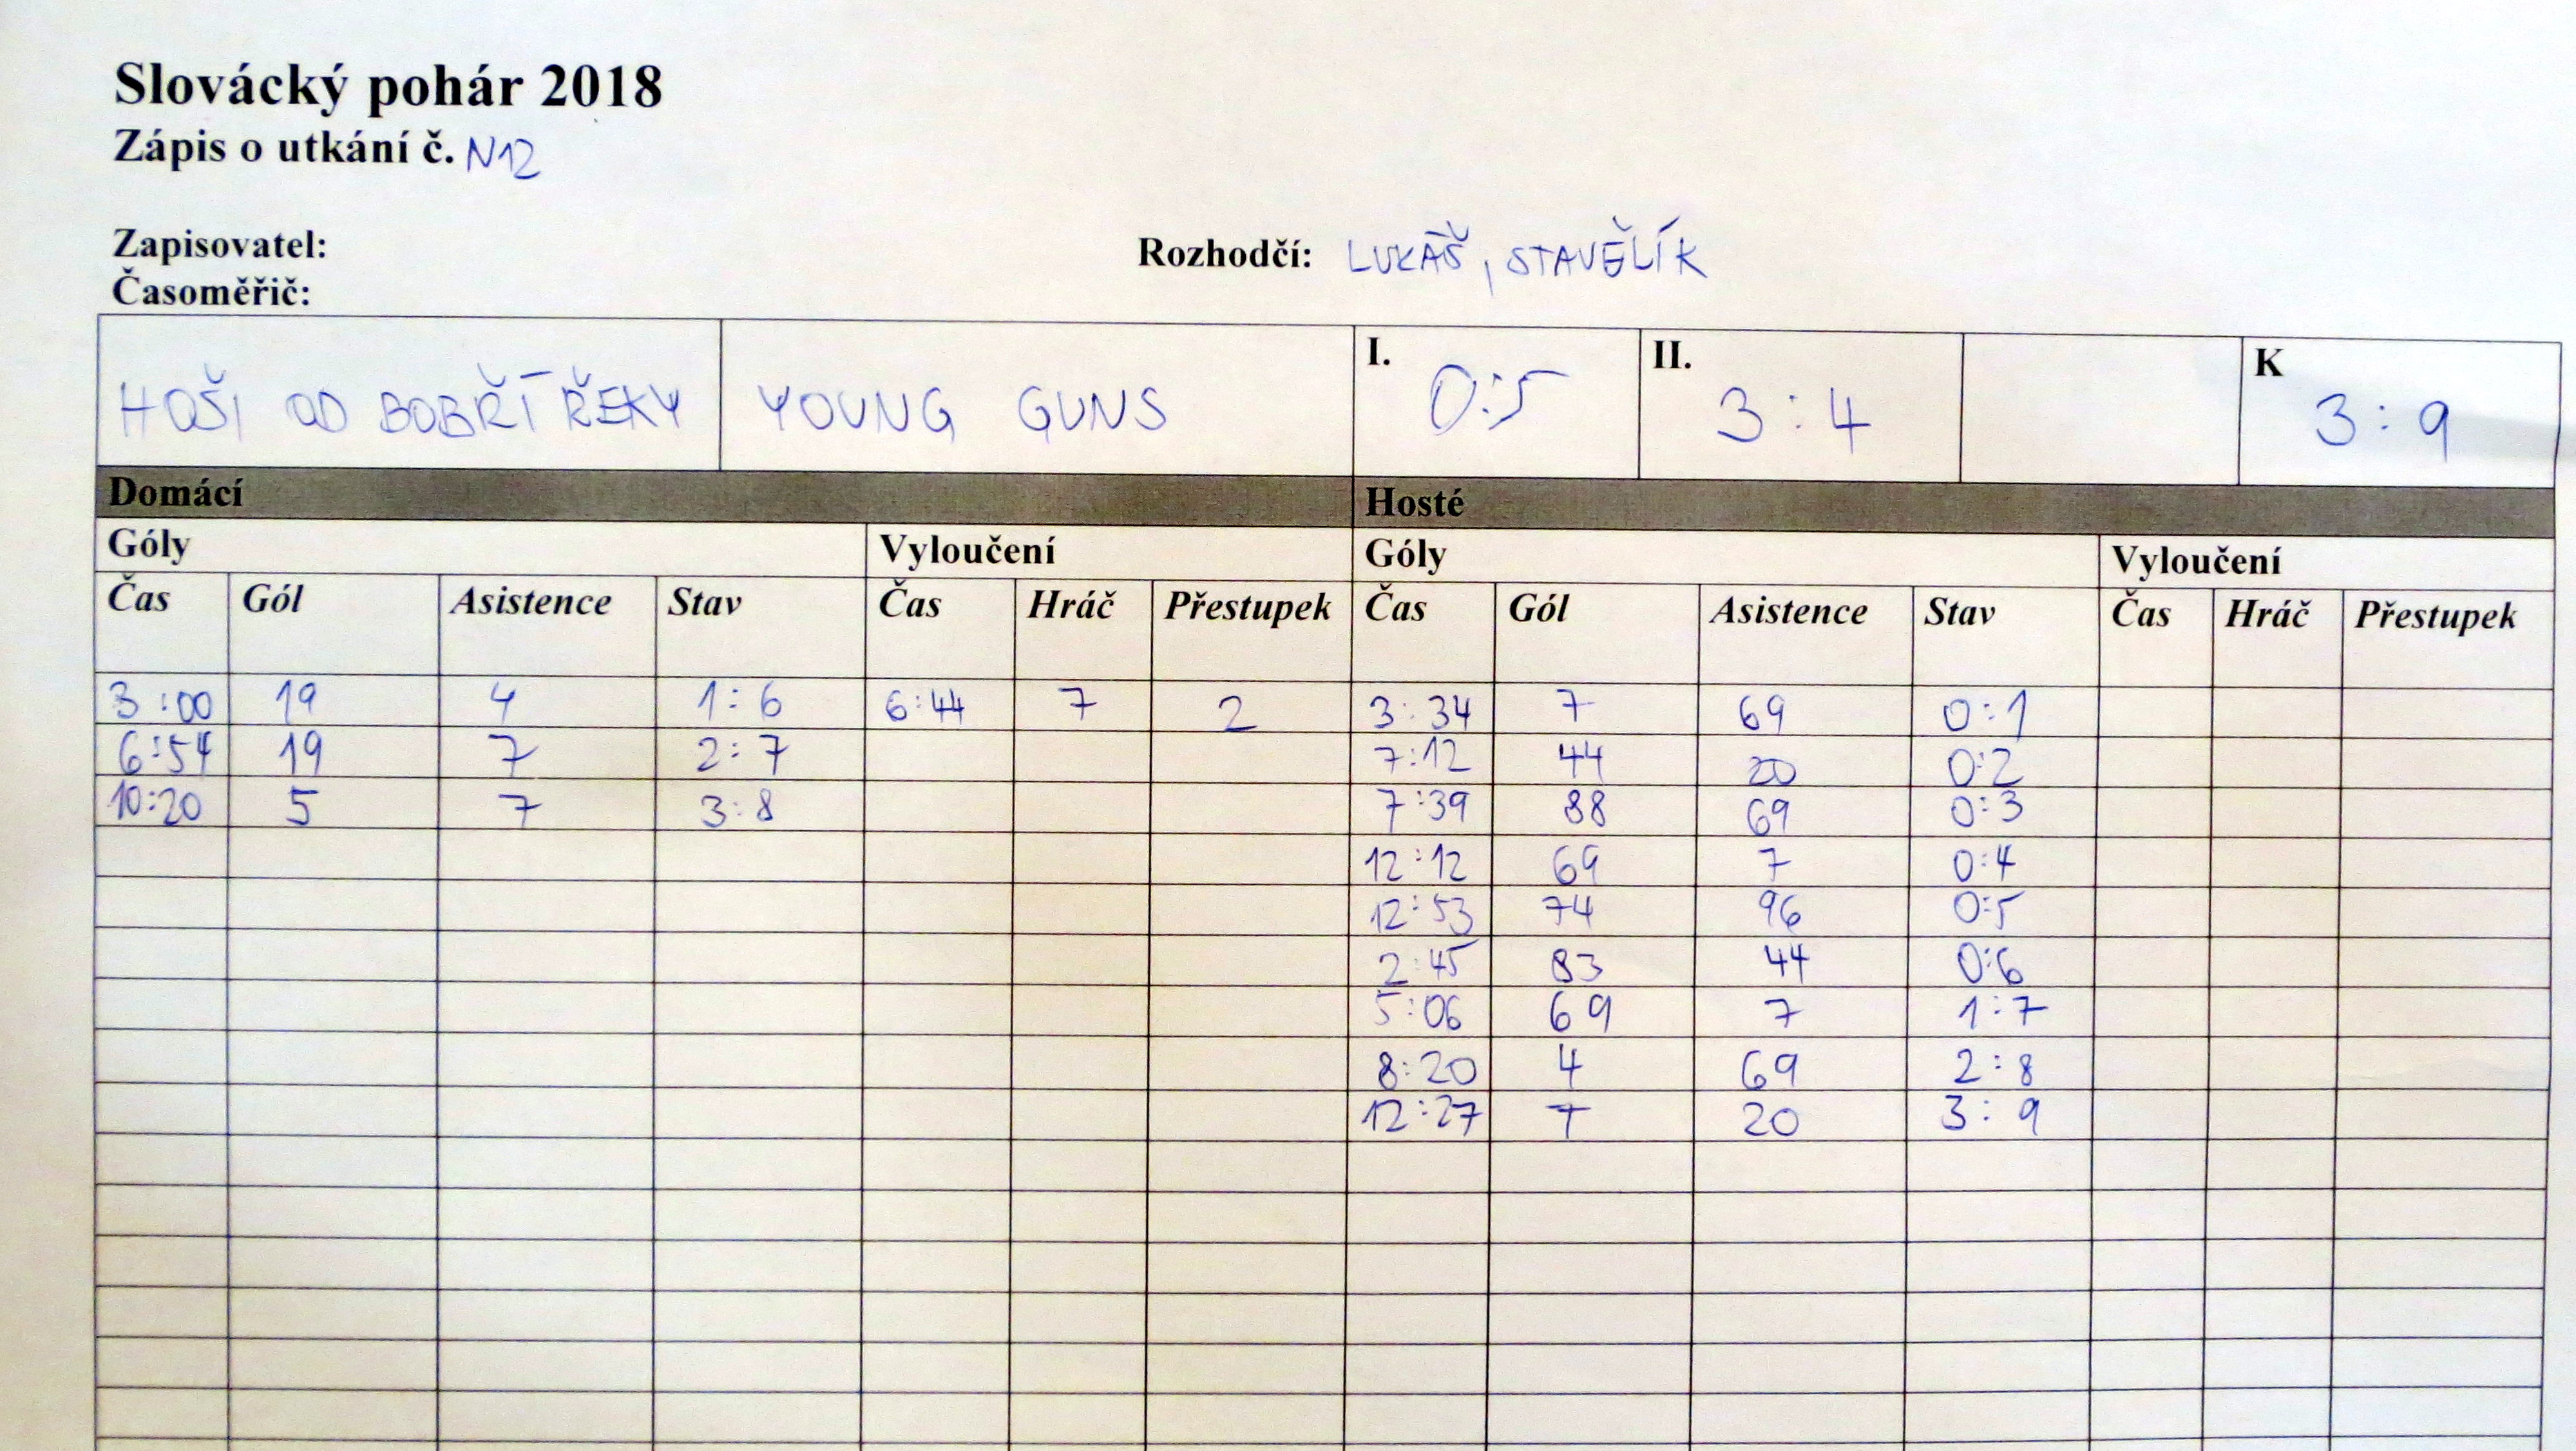 Slovácký pohár 2018
Zápis o utkání č. N12
Zapisovatel:
Rozhodčí: LUKÁŠ, STAVĚLÍK
Časoměřič:
HOŠI OD BOBŘÍ ŘEKY YOUNG GUNS I. 0:5 II. 3:4 K 3:9
Domácí Hosté
Góly Vyloučení Góly Vyloučení
Čas Gól Asistence Stav Čas Hráč Přestupek Čas Gól Asistence Stav Čas Hráč Přestupek
3:00 19 4 1:6 6:44 7 2 3:34 7 69 0:1
6:54 19 7 2:7 7:12 44 20 0:2
10:20 5 7 3:8 7:39 88 69 0:3
12:12 69 7 0:4
12:53 74 96 0:5
2:45 83 44 0:6
5:06 69 7 1:7
8:20 4 69 2:8
12:27 7 20 3:9